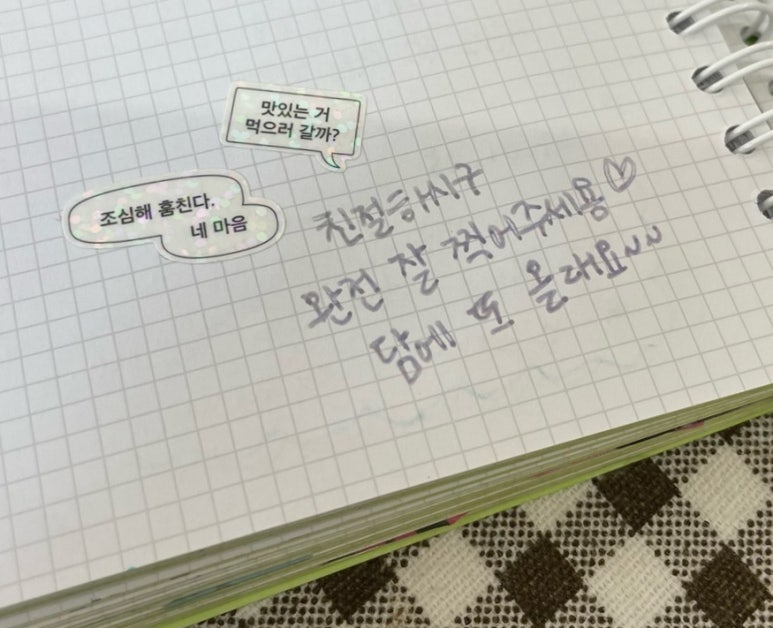 맛있는 거
먹으러 갈까?
조심해 훔친다.
네 마음
친절하시구
완전 잘 찍어주세용♡
담에 또 올대요~~